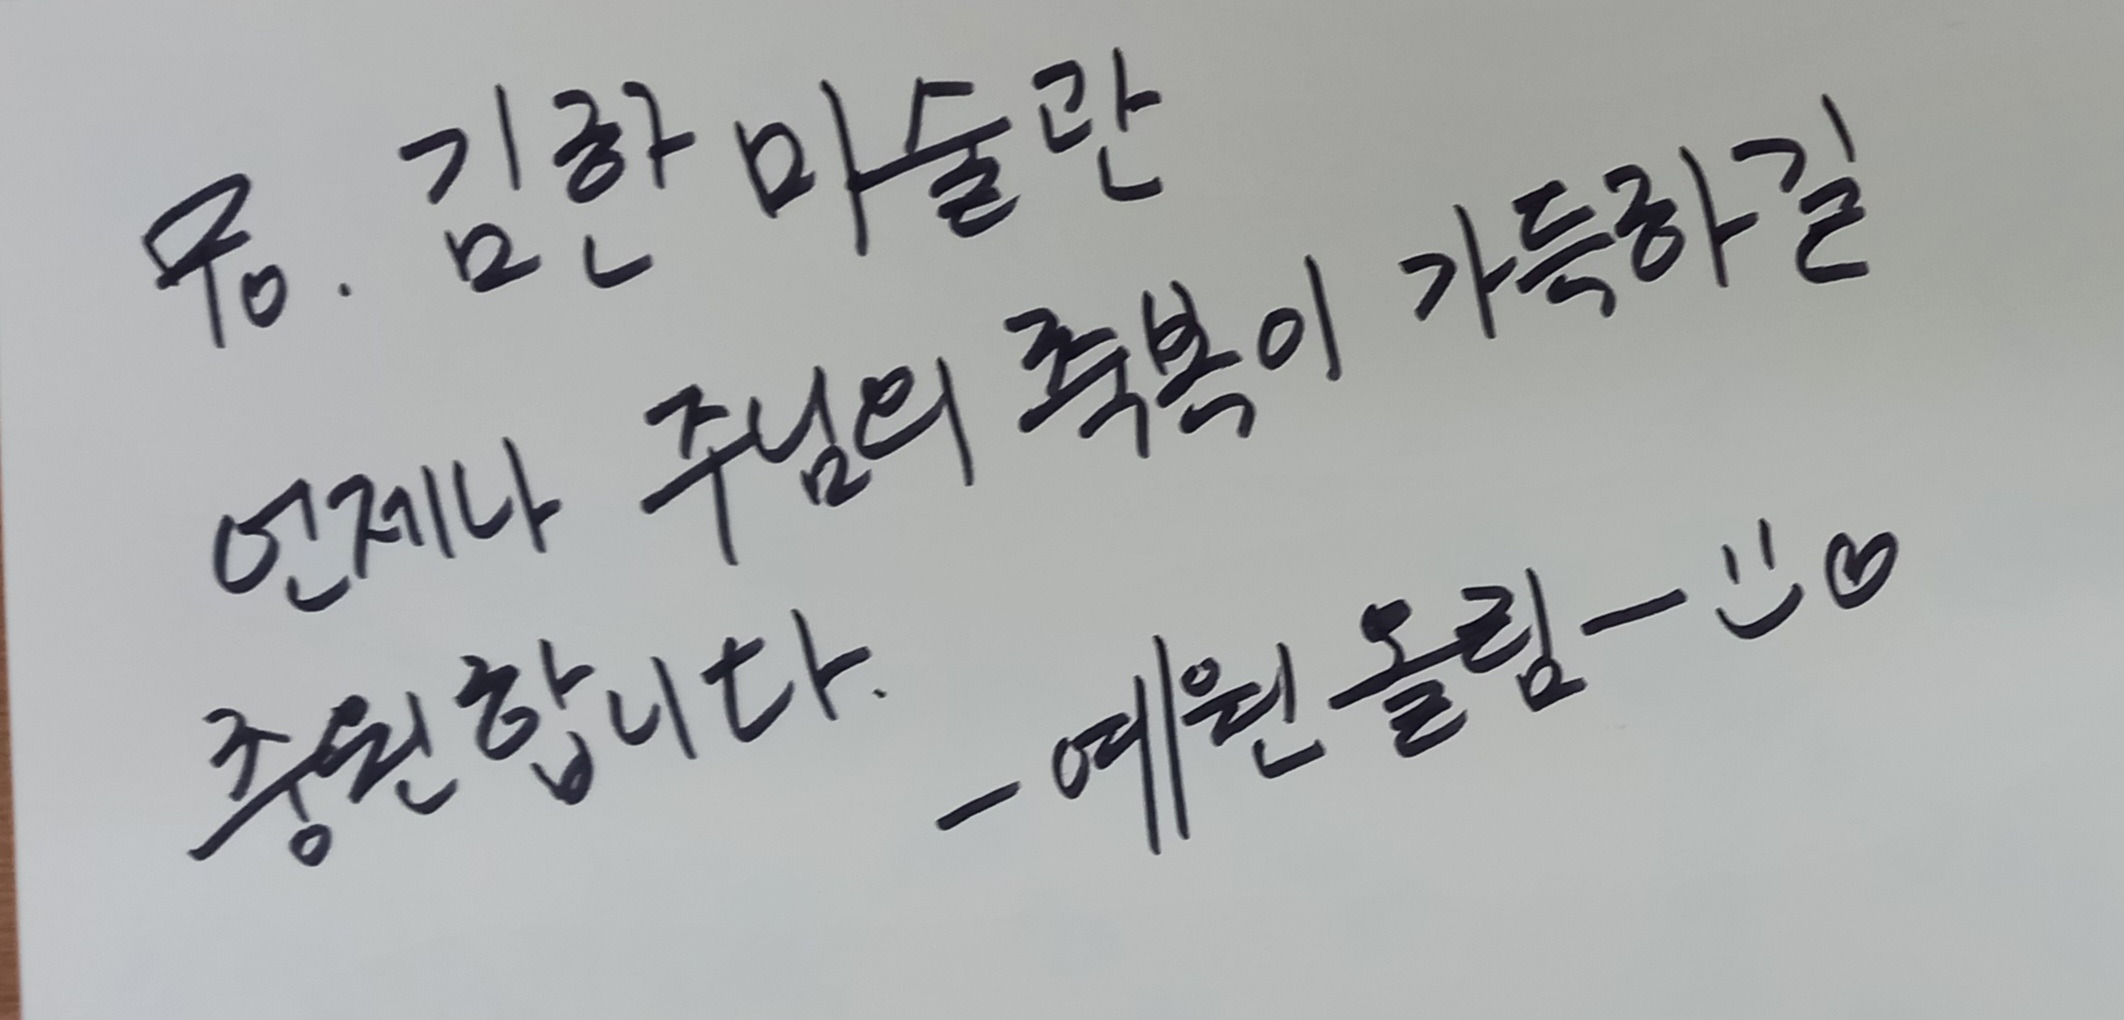 To. 김한 미술관
언제나 주님의 축복이 가득하길
중원합니다. -예원 올림-